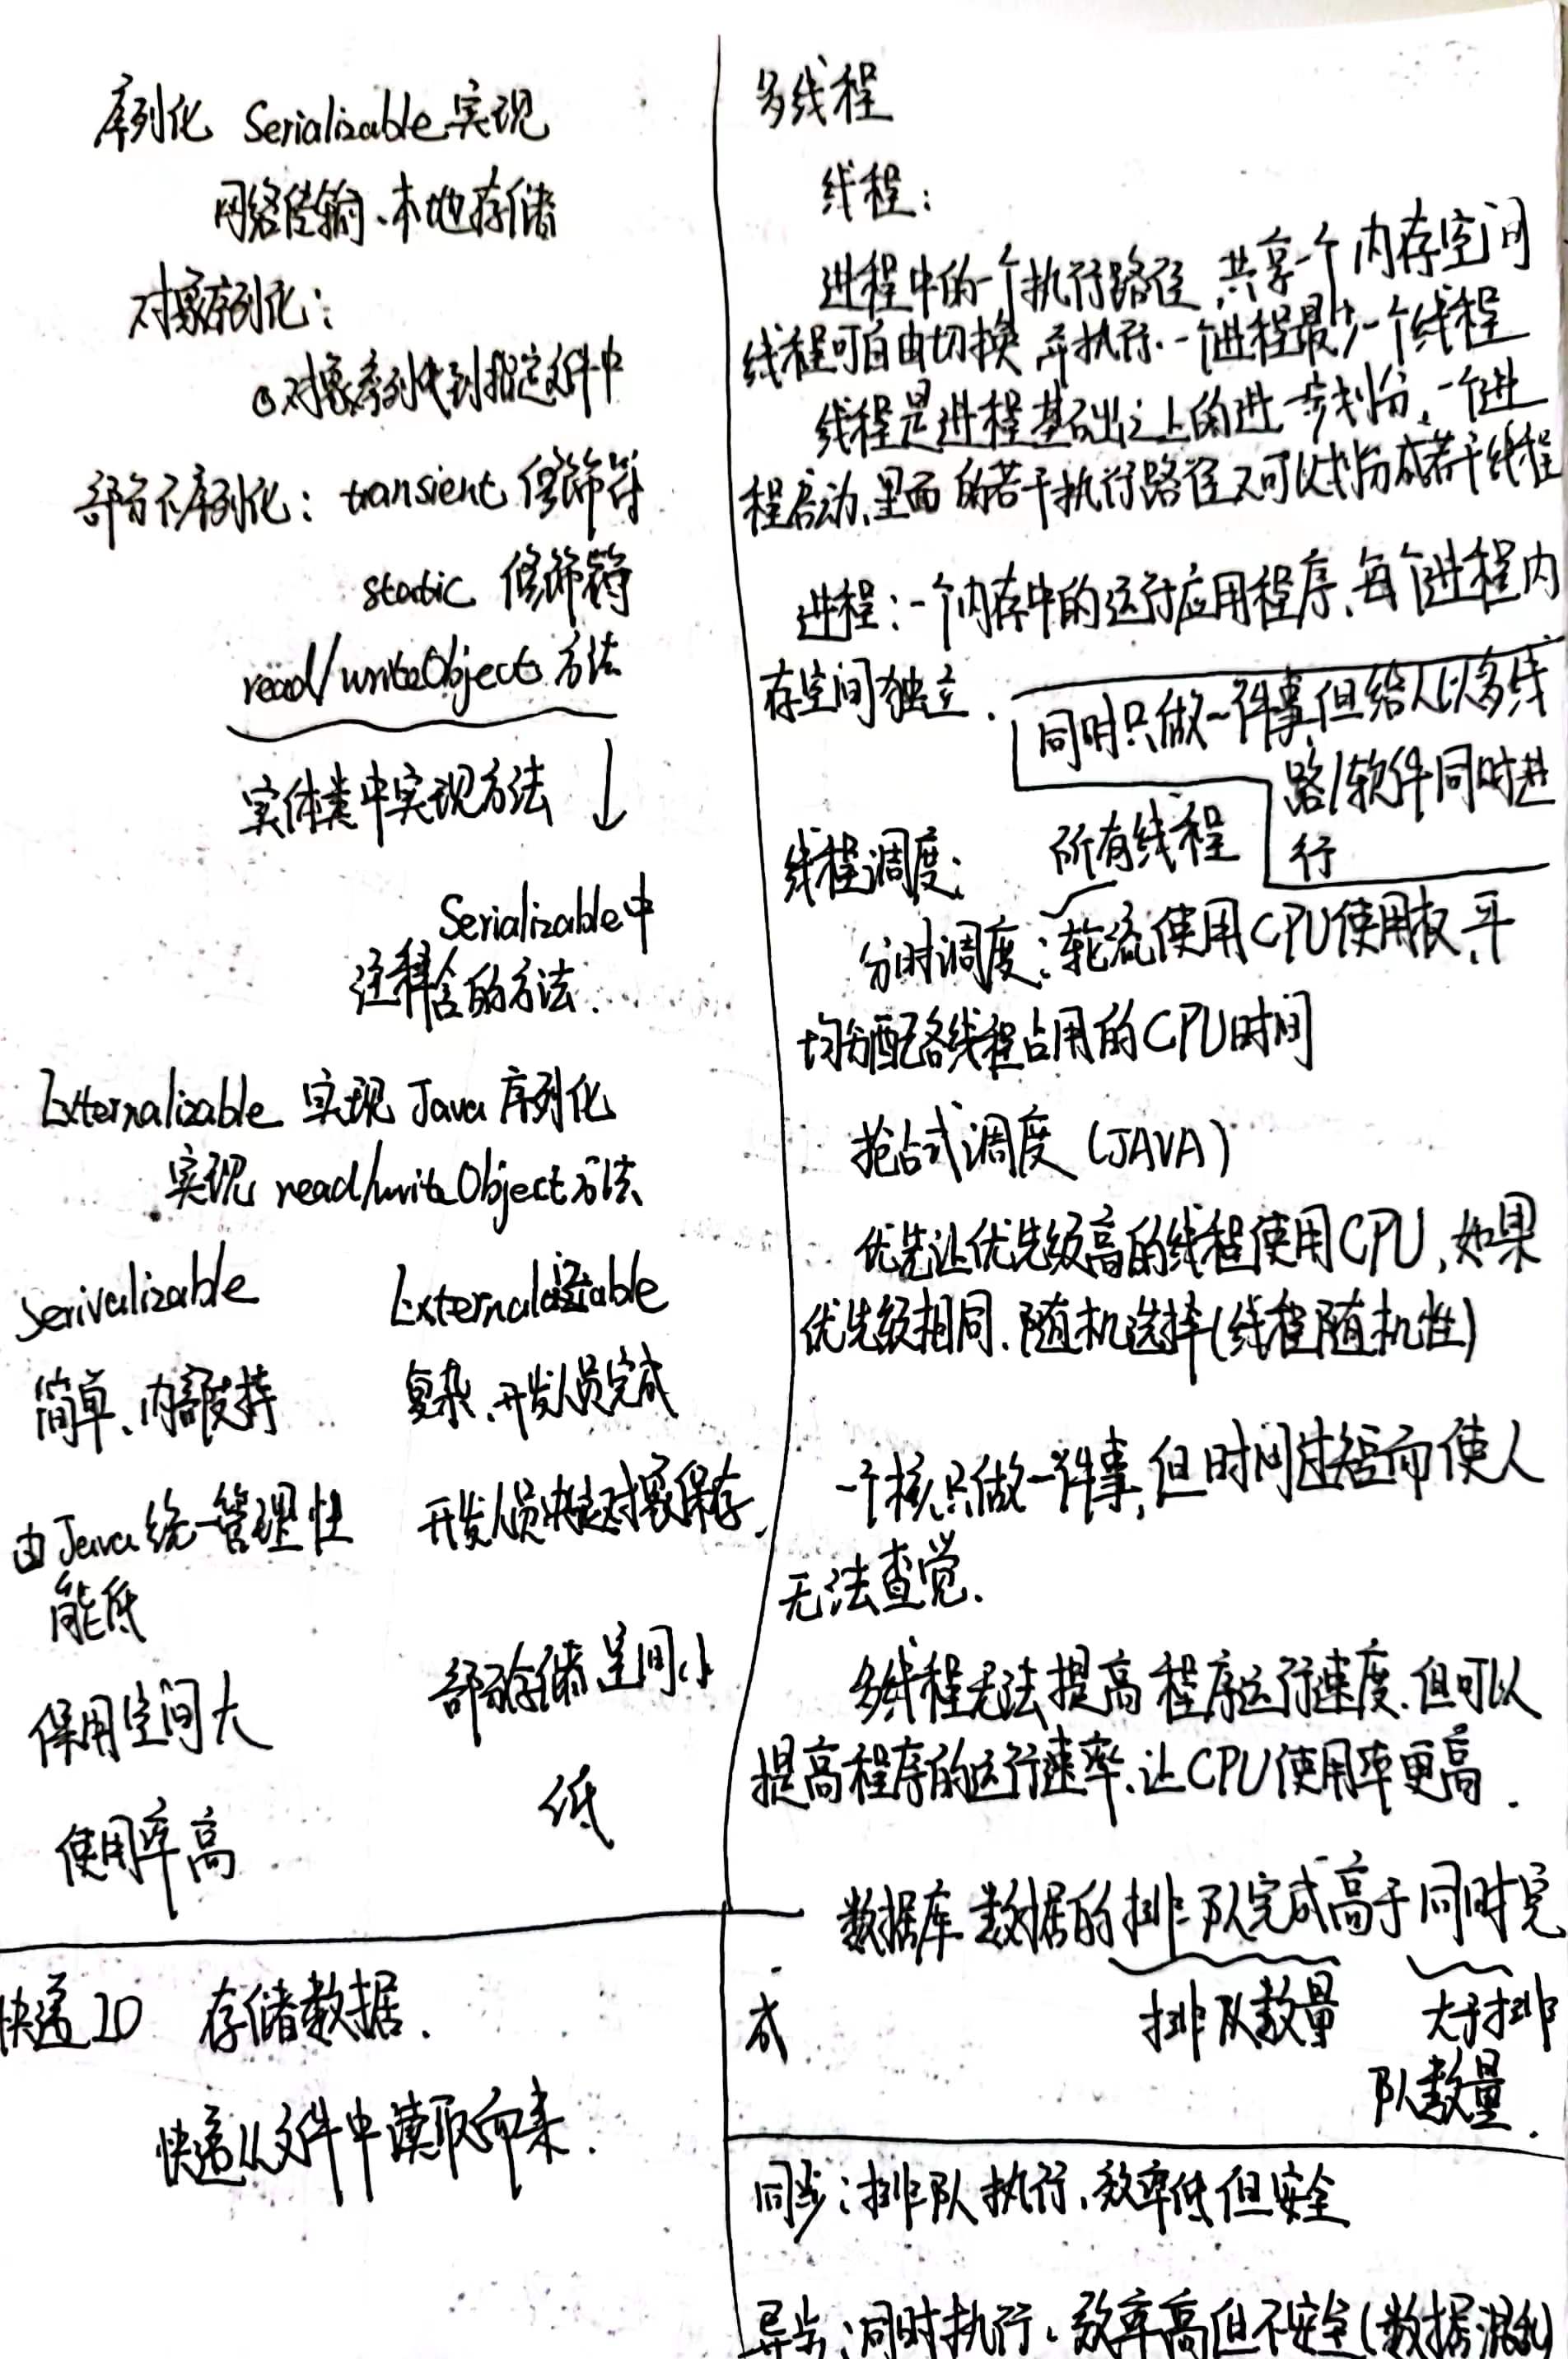 序列化 Serializable实现
网络传输、本地存储
对象序列化：
对象序列化到指定文件中
部分不序列化：transient 修饰符
static 修饰符
read/writeObject 方法
实体类中实现方法
Serializable中
注释含的方法.
Externalizable 实现 Java 序列化
实现 read/writeObject方法
Serivalizable Externalizable
简单、内部支持 复杂、开发人员完成
由Java统一管理性 开发人员决定对象保存,
能低
保用空间大 部分存储 空间小
使用率高 低
快递IO 存储数据.
快递从文件中读取
多线程
线程：
进程中的一个执行路径,共享一个内存空间
线程可自由切换 并执行.一个进程最少一个线程
线程是进程基础之上的进一步划分,一个进
程启动,里面的若干执行路径又可以划分成若干线程
进程：一个内存中的运行应用程序,每个进程内
存空间独立.
同时只做一件事,但给人以多线
路/软件同时进
行
线程调度： 所有线程
分时调度：轮流使用CPU使用权,平
均分配各线程占用的CPU时间
抢占式调度 (JAVA)
优先让优先级高的线程使用CPU,如果
优先级相同.随机选择(线程随机性)
一个核只做一件事,但时间过短而使人
无法查觉.
多线程无法提高程序运行速度.但可以
提高程序的运行速率.让CPU使用率更高.
数据库 数据的排队完成高于同时完
成 排队数量 大于排
队数量.
同步：排队执行,效率低但安全
异步：同时执行.效率高但不安全(数据混乱)